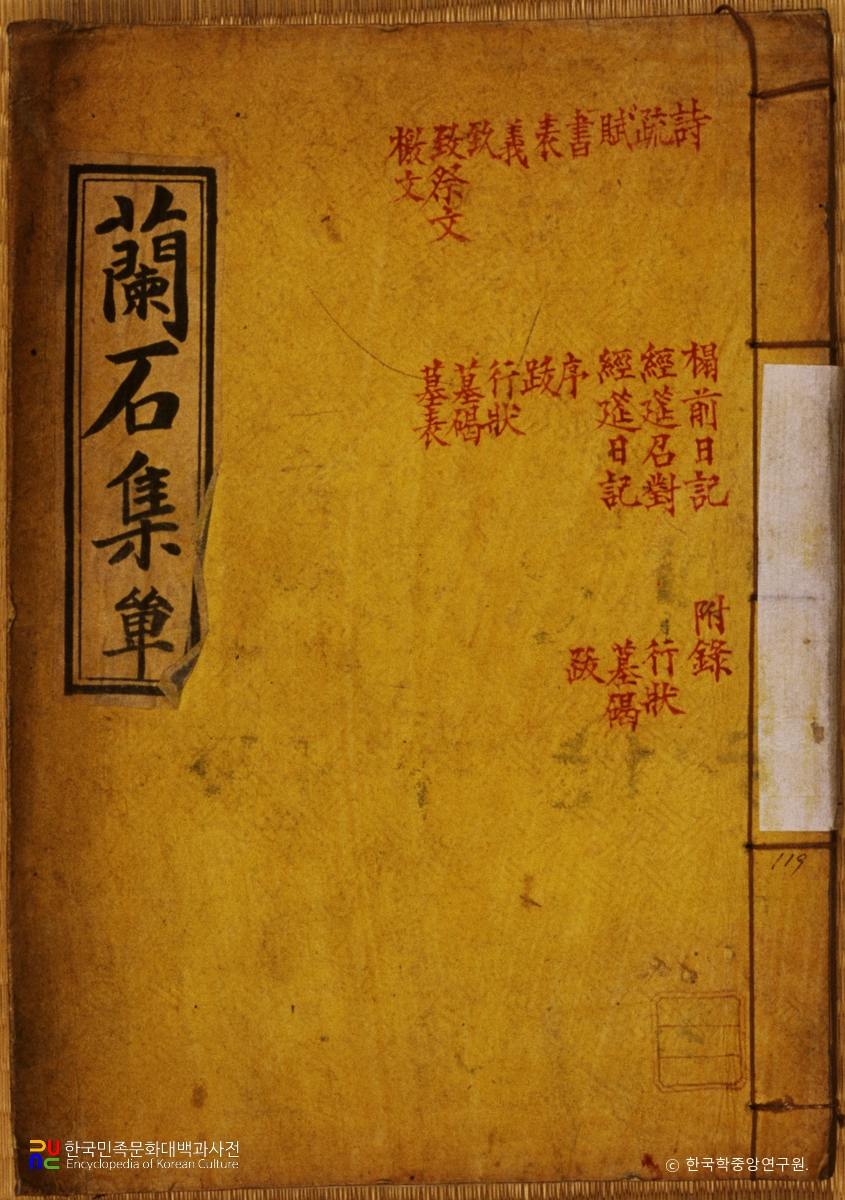 詩
疏
賦
書
表
義
致
致祭文
檄文
榻前日記
經筵召對
經筵日記
序
跋
行狀
墓碣
墓表
附錄
行狀
墓碣
跋
蘭石集 單
119
한국민족문화대백과사전
Encyclopedia of Korean Culture
© 한국학중앙연구원.